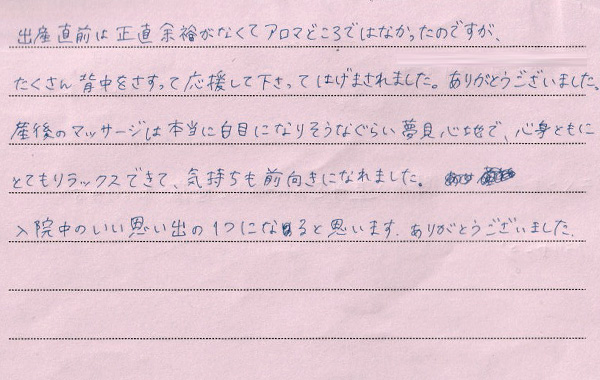 出産直前は正直余裕がなくてアロマどころではなかったのですが、
たくさん背中をさすって応援して下さってはげまされました。ありがとうございました。
産後のマッサージは本当に白目になりそうなぐらい夢見心地で、心身ともに
とてもリラックスできて、気持ちも前向きになれました。
入院中のいい思い出の1つになると思います。ありがとうございました。